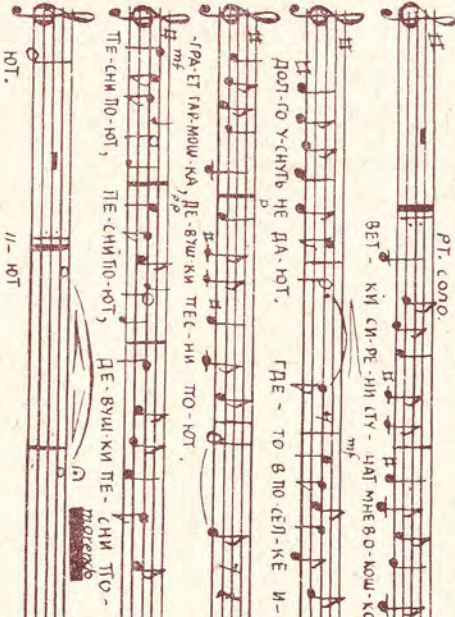 РТ. СОЛО.
ВЕТ - КИ СИ-РЕ-НИ СТУ- ЧАТ МНЕ В О-КОШ-К
mf
ДОЛ-ГО У-СНУТЬ НЕ ДА-ЮТ. ГДЕ - ТО В ПО-СЁЛ-КЕ И-
p
-ГРА-ЕТ ГАР-МОШ-КА, ДЕ-ВУШ-КИ ПЕС-НИ ПО-ЮТ.
mf pp
ПЕ-СНИ ПО-ЮТ, ПЕ-СНИ ПО-ЮТ, ДЕ-ВУШ-КИ ПЕ-СНИ ПО-
morendo
ЮТ. II- ЮТ